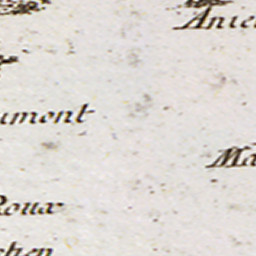 Anie
ument
Ma
Roux
chen